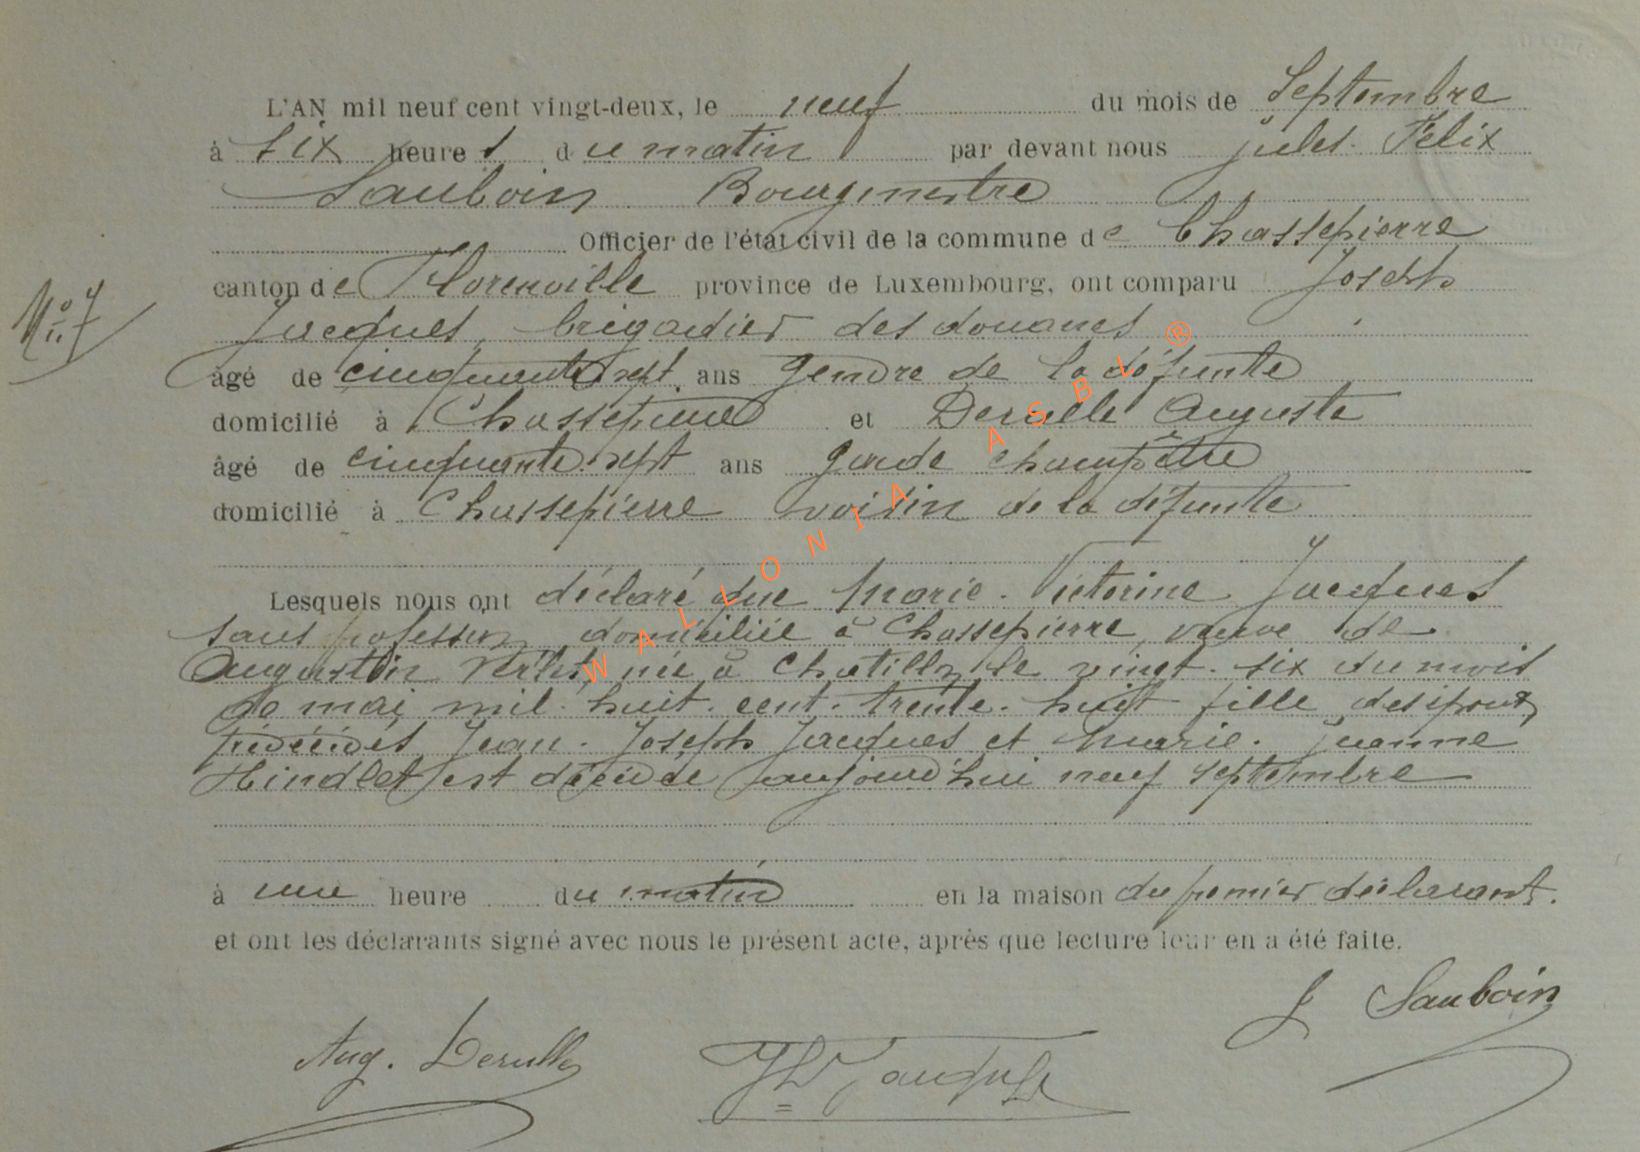 L'AN mil neuf cent vingt-deux, le neuf du mois de Septembre
à six heures du matin par devant nous Jules Félix
Sauboin Bourgmestre
Officier de l'état civil de la commune de Chassepierre
canton de Florenville province de Luxembourg, ont comparu Joseph
N° 7
Jacques, brigadier des douanes
âgé de cinquante sept ans gendre de la défunte
domicilié à Chassepierre et Derulle Auguste
âgé de cinquante sept ans garde champêtre
domicilié à Chassepierre voisin de la défunte
Lesquels nous ont déclaré que Marie-Victorine Jacques
sans profession domiciliée à Chassepierre, veuve de
Augustin née à Chatillon le vingt-six du mois
de mai mil-huit-cent-trente-huit fille des époux
prédécédés Jean-Joseph Jacques et Marie-Jeanne
est décédée aujourd'hui neuf septembre
à une heure du matin en la maison du premier déclarant.
et ont les déclarants signé avec nous le présent acte, après que lecture leur en a été faite.
J Sauboin
Aug. Derulle
WALLONIA ASBL ®